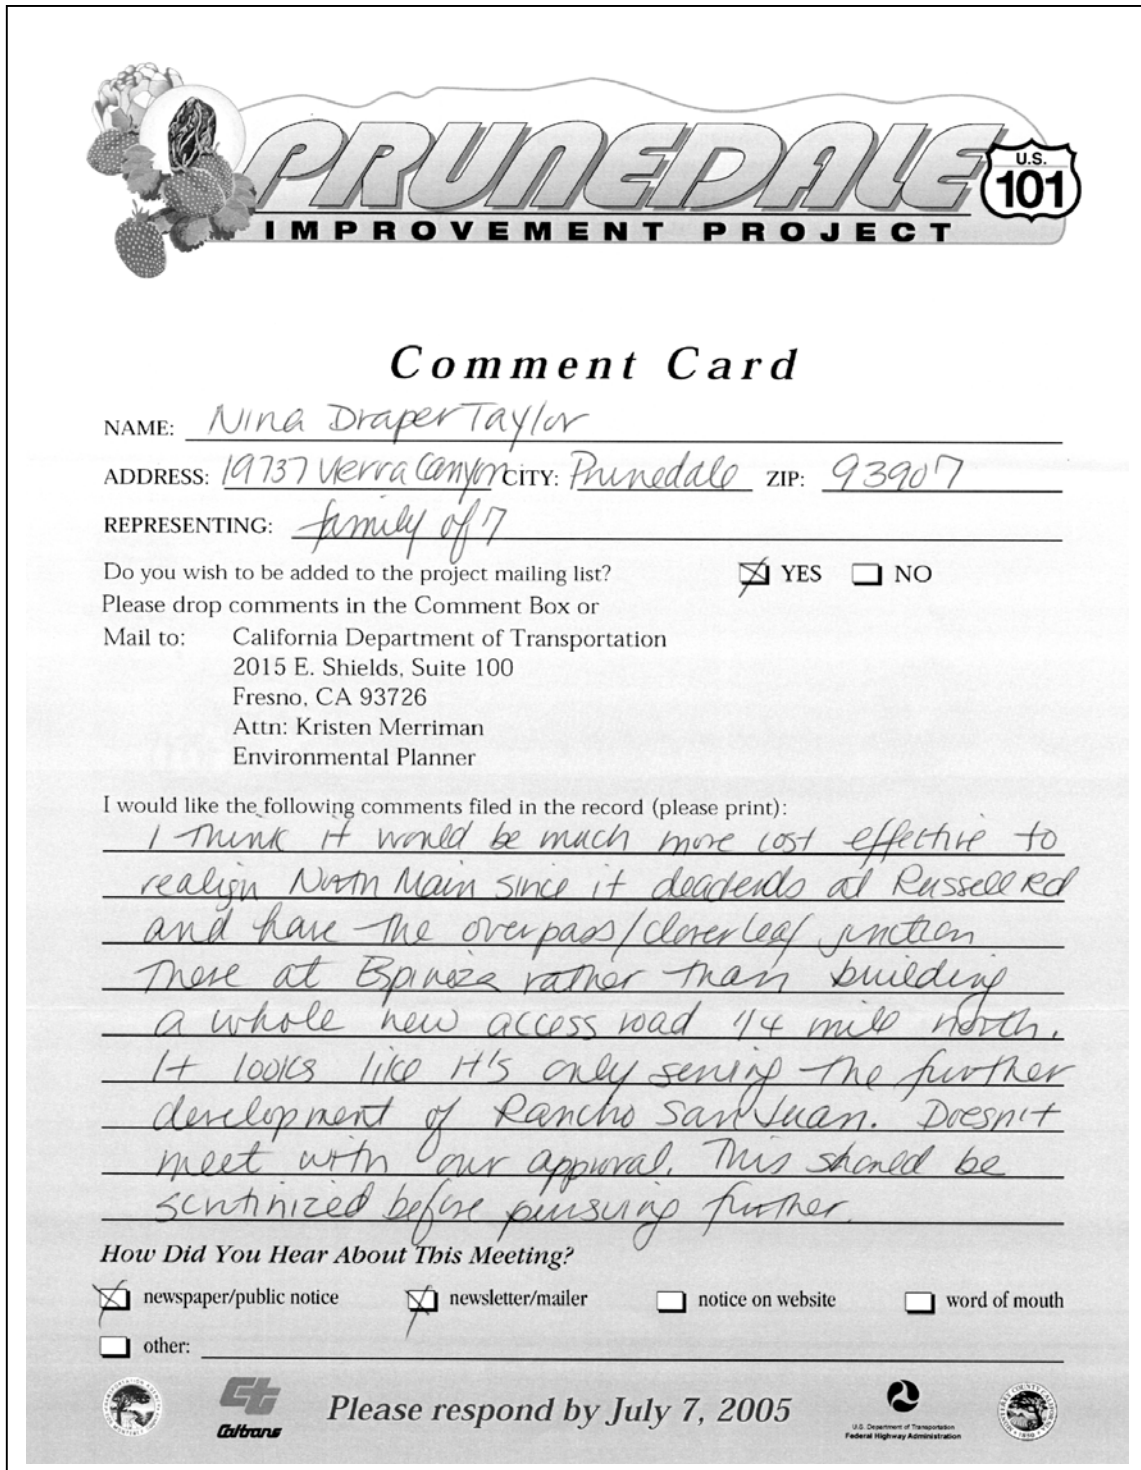 PRUNEDALE
U.S.
101
IMPROVEMENT PROJECT
Comment Card
NAME: Nina Draper Taylor
ADDRESS: 19737 Vierra Canyon CITY: Prunedale ZIP: 93907
REPRESENTING: family of 7
Do you wish to be added to the project mailing list? YES NO
Please drop comments in the Comment Box or
Mail to: California Department of Transportation
2015 E. Shields, Suite 100
Fresno, CA 93726
Attn: Kristen Merriman
Environmental Planner
I would like the following comments filed in the record (please print):
I think it would be much more cost effective to
realign North Main since it deadends at Russell Rd
and have the overpass/cloverleaf junction
there at Espinoza rather than building
a whole new access road 1/4 mile north.
It looks like it's only serving the further
development of Rancho San Juan. Doesn't
meet with our approval. This should be
scrutinized before pursuing further.
How Did You Hear About This Meeting?
newspaper/public notice newsletter/mailer notice on website word of mouth
other:
Caltrans
Please respond by July 7, 2005
U.S. Department of Transportation
Federal Highway Administration